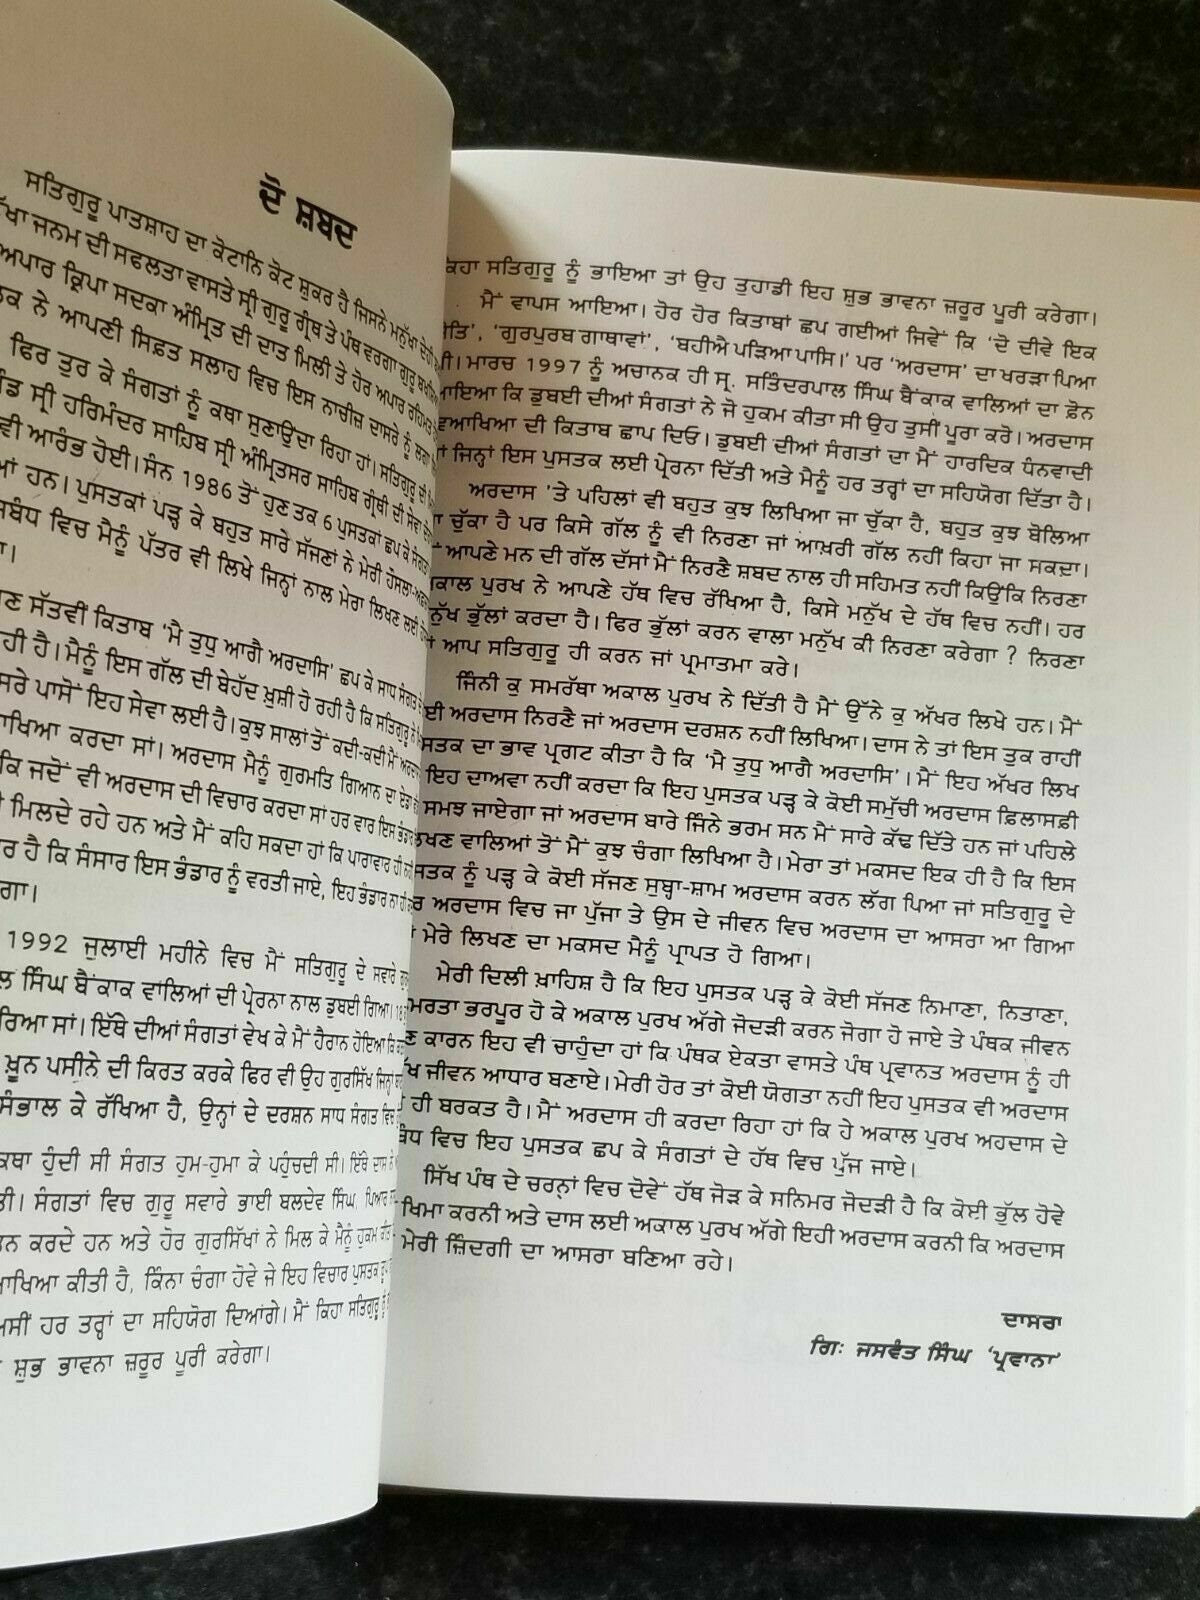 ਦੋ ਸ਼ਬਦ
ਸਤਿਗੁਰੂ ਪਾਤਸ਼ਾਹ ਦਾ ਕੋਟਾਨਿ ਕੋਟ ਸ਼ੁਕਰ ਹੈ ਜਿਸਨੇ ਮਨੁੱਖਾ ਦੇਹੀ
ਜਨਮ ਦੀ ਸਫਲਤਾ ਵਾਸਤੇ ਸ੍ਰੀ ਗੁਰੂ ਗ੍ਰੰਥ ਤੇ ਪੰਥ ਵਰਗਾ ਗੁਰੂ
ਅਪਾਰ ਕ੍ਰਿਪਾ ਸਦਕਾ ਅੰਮ੍ਰਿਤ ਦੀ ਦਾਤ ਮਿਲੀ ਤੇ ਹੋਰ ਅਪਾਰ ਰਹਿਮਤ
ਨੇ ਆਪਣੀ ਸਿਫ਼ਤ ਸਲਾਹ ਵਿਚ ਇਸ ਨਾਚੀਜ਼ ਦਾਸਰੇ ਨੂੰ ਲਗਾ
ਫਿਰ ਤੁਰ ਕੇ ਸੰਗਤਾਂ ਨੂੰ ਕਥਾ ਸੁਣਾਉਂਦਾ ਰਿਹਾ ਹਾਂ। ਸਤਿਗੁਰੂ ਦੀ
ਸ੍ਰੀ ਹਰਿਮੰਦਰ ਸਾਹਿਬ ਸ੍ਰੀ ਅੰਮ੍ਰਿਤਸਰ ਸਾਹਿਬ ਗ੍ਰੰਥੀ ਦੀ ਸੇਵਾ
ਵੀ ਆਰੰਭ ਹੋਈ। ਸੰਨ 1986 ਤੋਂ ਹੁਣ ਤਕ 6 ਪੁਸਤਕਾਂ ਛਪ ਕੇ
ਹਨ। ਪੁਸਤਕਾਂ ਪੜ੍ਹ ਕੇ ਬਹੁਤ ਸਾਰੇ ਸੱਜਣਾਂ ਨੇ ਮੇਰੀ
ਵਿਚ ਮੈਨੂੰ ਪੱਤਰ ਵੀ ਲਿਖੇ ਜਿਨ੍ਹਾਂ ਨਾਲ ਮੇਰਾ ਲਿਖਣ ਲਈ
ਸੱਤਵੀਂ ਕਿਤਾਬ ‘ਮੈ ਤੁਧੁ ਆਗੈ ਅਰਦਾਸਿ’ ਛਪ ਕੇ ਸਾਧ ਸੰਗਤ
ਹੈ। ਮੈਨੂੰ ਇਸ ਗੱਲ ਦੀ ਬੇਹੱਦ ਖ਼ੁਸ਼ੀ ਹੋ ਰਹੀ ਹੈ ਕਿ ਸਤਿਗੁਰੂ ਨੇ
ਪਾਸੋਂ ਇਹ ਸੇਵਾ ਲਈ ਹੈ। ਕੁਝ ਸਾਲਾਂ ਤੋਂ ਕਦੀ-ਕਦੀ ਮੈਂ
ਕਰਦਾ ਸਾਂ। ਅਰਦਾਸ ਮੈਨੂੰ ਗੁਰਮਤਿ ਗਿਆਨ ਦਾ ਏਡਾ
ਕਿ ਜਦੋਂ ਵੀ ਅਰਦਾਸ ਦੀ ਵਿਚਾਰ ਕਰਦਾ ਸਾਂ ਹਰ ਵਾਰ ਇਸ
ਮਿਲਦੇ ਰਹੇ ਹਨ ਅਤੇ ਮੈਂ ਕਹਿ ਸਕਦਾ ਹਾਂ ਕਿ ਪਾਰਾਵਾਰ ਹੀ
ਹੈ ਕਿ ਸੰਸਾਰ ਇਸ ਭੰਡਾਰ ਨੂੰ ਵਰਤੀ ਜਾਏ, ਇਹ ਭੰਡਾਰ ਨਾ ਹੀ
1992 ਜੁਲਾਈ ਮਹੀਨੇ ਵਿਚ ਮੈਂ ਸਤਿਗੁਰੂ ਦੇ ਸਵਾਰੇ
ਸਿੰਘ ਬੈਂਕਾਕ ਵਾਲਿਆਂ ਦੀ ਪ੍ਰੇਰਨਾ ਨਾਲ ਡੁਬਈ ਗਿਆ।
ਸਾਂ। ਇੱਥੇ ਦੀਆਂ ਸੰਗਤਾਂ ਵੇਖ ਕੇ ਮੈਂ ਹੈਰਾਨ ਹੋਇਆ ਕਿ
ਖ਼ੂਨ ਪਸੀਨੇ ਦੀ ਕਿਰਤ ਕਰਕੇ ਫਿਰ ਵੀ ਉਹ ਗੁਰਸਿੱਖ ਜਿਨ੍ਹਾਂ
ਸੰਭਾਲ ਕੇ ਰੱਖਿਆ ਹੈ, ਉਨ੍ਹਾਂ ਦੇ ਦਰਸ਼ਨ ਸਾਧ ਸੰਗਤ ਵਿਚ
ਕਥਾ ਹੁੰਦੀ ਸੀ ਸੰਗਤ ਹੁਮ-ਹੁਮਾ ਕੇ ਪਹੁੰਚਦੀ ਸੀ। ਇੱਥੇ ਦਾਸ
ਸੰਗਤਾਂ ਵਿਚ ਗੁਰੂ ਸਵਾਰੇ ਭਾਈ ਬਲਦੇਵ ਸਿੰਘ, ਪਿਆਰ
ਕਰਦੇ ਹਨ ਅਤੇ ਹੋਰ ਗੁਰਸਿੱਖਾਂ ਨੇ ਮਿਲ ਕੇ ਮੈਨੂੰ ਹੁਕਮ
ਕੀਤੀ ਹੈ, ਕਿੰਨਾ ਚੰਗਾ ਹੋਵੇ ਜੇ ਇਹ ਵਿਚਾਰ ਪੁਸਤਕ
ਹਰ ਤਰ੍ਹਾਂ ਦਾ ਸਹਿਯੋਗ ਦਿਆਂਗੇ। ਮੈਂ ਕਿਹਾ ਸਤਿਗੁਰੂ ਨੂੰ
ਸ਼ੁਭ ਭਾਵਨਾ ਜ਼ਰੂਰ ਪੂਰੀ ਕਰੇਗਾ।
ਕਿਹਾ ਸਤਿਗੁਰੂ ਨੂੰ ਭਾਇਆ ਤਾਂ ਉਹ ਤੁਹਾਡੀ ਇਹ ਸ਼ੁਭ ਭਾਵਨਾ ਜ਼ਰੂਰ ਪੂਰੀ ਕਰੇਗਾ।
ਮੈਂ ਵਾਪਸ ਆਇਆ। ਹੋਰ ਹੋਰ ਕਿਤਾਬਾਂ ਛਪ ਗਈਆਂ ਜਿਵੇਂ ਕਿ ‘ਦੋ ਦੀਵੇ ਇਕ
‘ਗੁਰਪੁਰਬ ਗਾਥਾਵਾਂ’, ‘ਬਹੀਐ ਪੜਿਆ ਪਾਸਿ।’ ਪਰ ‘ਅਰਦਾਸ’ ਦਾ ਖਰੜਾ ਪਿਆ
ਮਾਰਚ 1997 ਨੂੰ ਅਚਾਨਕ ਹੀ ਸ੍ਰ. ਸਤਿੰਦਰਪਾਲ ਸਿੰਘ ਬੈਂਕਾਕ ਵਾਲਿਆਂ ਦਾ ਫ਼ੋਨ
ਕਿ ਡੁਬਈ ਦੀਆਂ ਸੰਗਤਾਂ ਨੇ ਜੋ ਹੁਕਮ ਕੀਤਾ ਸੀ ਉਹ ਤੁਸੀਂ ਪੂਰਾ ਕਰੋ। ਅਰਦਾਸ
ਦੀ ਕਿਤਾਬ ਛਾਪ ਦਿਓ। ਡੁਬਈ ਦੀਆਂ ਸੰਗਤਾਂ ਦਾ ਮੈਂ ਹਾਰਦਿਕ ਧੰਨਵਾਦੀ
ਜਿਨ੍ਹਾਂ ਇਸ ਪੁਸਤਕ ਲਈ ਪ੍ਰੇਰਨਾ ਦਿੱਤੀ ਅਤੇ ਮੈਨੂੰ ਹਰ ਤਰ੍ਹਾਂ ਦਾ ਸਹਿਯੋਗ ਦਿੱਤਾ ਹੈ।
ਅਰਦਾਸ ’ਤੇ ਪਹਿਲਾਂ ਵੀ ਬਹੁਤ ਕੁਝ ਲਿਖਿਆ ਜਾ ਚੁੱਕਾ ਹੈ, ਬਹੁਤ ਕੁਝ ਬੋਲਿਆ
ਚੁੱਕਾ ਹੈ ਪਰ ਕਿਸੇ ਗੱਲ ਨੂੰ ਵੀ ਨਿਰਣਾ ਜਾਂ ਆਖ਼ਰੀ ਗੱਲ ਨਹੀਂ ਕਿਹਾ ਜਾ ਸਕਦਾ।
ਆਪਣੇ ਮਨ ਦੀ ਗੱਲ ਦੱਸਾਂ ਮੈਂ ਨਿਰਣੈ ਸ਼ਬਦ ਨਾਲ ਹੀ ਸਹਿਮਤ ਨਹੀਂ ਕਿਉਂਕਿ ਨਿਰਣਾ
ਪੁਰਖ ਨੇ ਆਪਣੇ ਹੱਥ ਵਿਚ ਰੱਖਿਆ ਹੈ, ਕਿਸੇ ਮਨੁੱਖ ਦੇ ਹੱਥ ਵਿਚ ਨਹੀਂ। ਹਰ
ਭੁੱਲਾਂ ਕਰਦਾ ਹੈ। ਫਿਰ ਭੁੱਲਾਂ ਕਰਨ ਵਾਲਾ ਮਨੁੱਖ ਕੀ ਨਿਰਣਾ ਕਰੇਗਾ ? ਨਿਰਣਾ
ਆਪ ਸਤਿਗੁਰੂ ਹੀ ਕਰਨ ਜਾਂ ਪ੍ਰਮਾਤਮਾ ਕਰੇ।
ਜਿੰਨੀ ਕੁ ਸਮਰੱਥਾ ਅਕਾਲ ਪੁਰਖ ਨੇ ਦਿੱਤੀ ਹੈ ਮੈਂ ਉੱਨੇ ਕੁ ਅੱਖਰ ਲਿਖੇ ਹਨ। ਮੈਂ
ਅਰਦਾਸ ਨਿਰਣੈ ਜਾਂ ਅਰਦਾਸ ਦਰਸ਼ਨ ਨਹੀਂ ਲਿਖਿਆ। ਦਾਸ ਨੇ ਤਾਂ ਇਸ ਤੁਕ ਰਾਹੀਂ
ਦਾ ਭਾਵ ਪ੍ਰਗਟ ਕੀਤਾ ਹੈ ਕਿ ‘ਮੈ ਤੁਧੁ ਆਗੈ ਅਰਦਾਸਿ’। ਮੈਂ ਇਹ ਅੱਖਰ ਲਿਖ
ਇਹ ਦਾਅਵਾ ਨਹੀਂ ਕਰਦਾ ਕਿ ਇਹ ਪੁਸਤਕ ਪੜ੍ਹ ਕੇ ਕੋਈ ਸਮੁੱਚੀ ਅਰਦਾਸ ਫ਼ਿਲਾਸਫ਼ੀ
ਸਮਝ ਜਾਏਗਾ ਜਾਂ ਅਰਦਾਸ ਬਾਰੇ ਜਿੰਨੇ ਭਰਮ ਸਨ ਮੈਂ ਸਾਰੇ ਕੱਢ ਦਿੱਤੇ ਹਨ ਜਾਂ ਪਹਿਲੇ
ਵਾਲਿਆਂ ਤੋਂ ਮੈਂ ਕੁਝ ਚੰਗਾ ਲਿਖਿਆ ਹੈ। ਮੇਰਾ ਤਾਂ ਮਕਸਦ ਇਕ ਹੀ ਹੈ ਕਿ ਇਸ
ਨੂੰ ਪੜ੍ਹ ਕੇ ਕੋਈ ਸੱਜਣ ਸੁਬ੍ਹਾ-ਸ਼ਾਮ ਅਰਦਾਸ ਕਰਨ ਲੱਗ ਪਿਆ ਜਾਂ ਸਤਿਗੁਰੂ ਦੇ
ਅਰਦਾਸ ਵਿਚ ਜਾ ਪੁੱਜਾ ਤੇ ਉਸ ਦੇ ਜੀਵਨ ਵਿਚ ਅਰਦਾਸ ਦਾ ਆਸਰਾ ਆ ਗਿਆ
ਮੇਰੇ ਲਿਖਣ ਦਾ ਮਕਸਦ ਮੈਨੂੰ ਪ੍ਰਾਪਤ ਹੋ ਗਿਆ।
ਮੇਰੀ ਦਿਲੀ ਖ਼ਾਹਿਸ਼ ਹੈ ਕਿ ਇਹ ਪੁਸਤਕ ਪੜ੍ਹ ਕੇ ਕੋਈ ਸੱਜਣ ਨਿਮਾਣਾ, ਨਿਤਾਣਾ,
ਭਰਪੂਰ ਹੋ ਕੇ ਅਕਾਲ ਪੁਰਖ ਅੱਗੇ ਜੋਦੜੀ ਕਰਨ ਜੋਗਾ ਹੋ ਜਾਏ ਤੇ ਪੰਥਕ ਜੀਵਨ
ਕਾਰਨ ਇਹ ਵੀ ਚਾਹੁੰਦਾ ਹਾਂ ਕਿ ਪੰਥਕ ਏਕਤਾ ਵਾਸਤੇ ਪੰਥ ਪ੍ਰਵਾਨਤ ਅਰਦਾਸ ਨੂੰ ਹੀ
ਜੀਵਨ ਆਧਾਰ ਬਣਾਏ। ਮੇਰੀ ਹੋਰ ਤਾਂ ਕੋਈ ਯੋਗਤਾ ਨਹੀਂ ਇਹ ਪੁਸਤਕ ਵੀ ਅਰਦਾਸ
ਹੀ ਬਰਕਤ ਹੈ। ਮੈਂ ਅਰਦਾਸ ਹੀ ਕਰਦਾ ਰਿਹਾ ਹਾਂ ਕਿ ਹੇ ਅਕਾਲ ਪੁਰਖ ਅਹਦਾਸ ਦੇ
ਵਿਚ ਇਹ ਪੁਸਤਕ ਛਪ ਕੇ ਸੰਗਤਾਂ ਦੇ ਹੱਥ ਵਿਚ ਪੁੱਜ ਜਾਏ।
ਸਿੱਖ ਪੰਥ ਦੇ ਚਰਨਾਂ ਵਿਚ ਦੋਵੇਂ ਹੱਥ ਜੋੜ ਕੇ ਸਨਿਮਰ ਜੋਦੜੀ ਹੈ ਕਿ ਕੋਈ ਭੁੱਲ ਹੋਵੇ
ਖਿਮਾ ਕਰਨੀ ਅਤੇ ਦਾਸ ਲਈ ਅਕਾਲ ਪੁਰਖ ਅੱਗੇ ਇਹੀ ਅਰਦਾਸ ਕਰਨੀ ਕਿ ਅਰਦਾਸ
ਮੇਰੀ ਜ਼ਿੰਦਗੀ ਦਾ ਆਸਰਾ ਬਣਿਆ ਰਹੇ।
ਦਾਸਰਾ
ਗਿ: ਜਸਵੰਤ ਸਿੰਘ ‘ਪ੍ਰਵਾਨਾ’